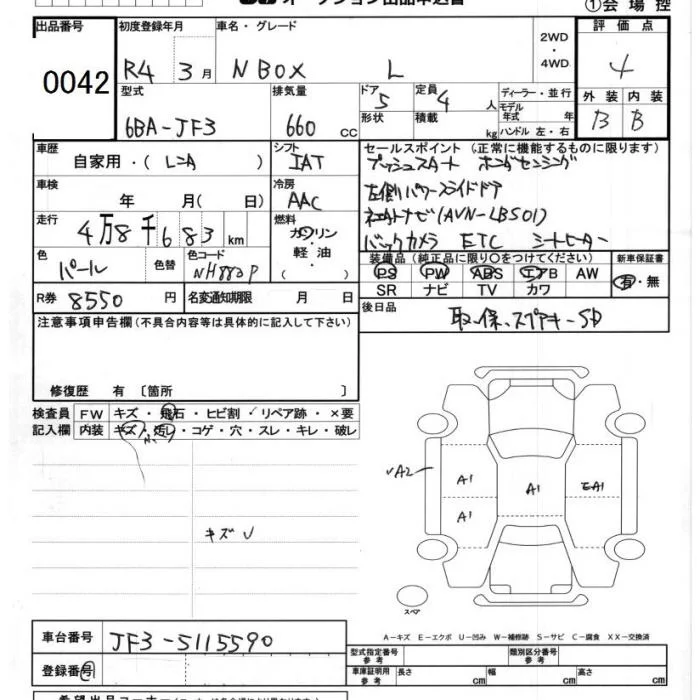 オークション出品申込書 ①会場控
出品番号 初度登録年月 車名・グレード 評価点
0042 R4 3月 N BOX L 2WD・4WD 4
型式 排気量 ドア 定員 ディーラー・並行 外装 内装
6BA-JF3 660cc 5 4人 モデル年式 年 B B
形状 積載 kg ハンドル 左・右
車歴 シフト セールスポイント (正常に機能するものに限ります)
自家用・( レンタ ) IAT プッシュスタート ホンダセンシング
車検 年 月(日) 冷房 AAC 左側パワースライドドア
走行 4万8千683km 燃料 ガソリン・軽油・( ) ナビ(AVN-LBS01)
バックカメラ ETC シートヒーター
色 パール 色替 色コード NH883P 装備品(純正品に限り○をつけてください) 新車保証書
PS PW ABS エアB AW 有・無
SR ナビ TV カワ
R券 8550円 名変通知期限 月 日 後日品
取、保、スプアキーSD
注意事項申告欄(不具合内容等は具体的に記入して下さい)
修復歴 有 〔箇所 〕
検査員 FW キズ・飛石・ヒビ割・✓リペア跡・×要
記入欄 内装 キズ・汚レ・コゲ・穴・スレ・キレ・破レ
✓A2 A1 A1 EA1
A1
キズ✓
スペア
A-キズ E-エクボ U-凹み W-補修跡 S-サビ C-腐食 XX-交換済
車台番号 JF3-5115590 型式指定番号 参考 類別区分番号 参考
登録番号 車庫証明用 参考 長さ cm 幅 cm 高さ cm
希望出品コーナー